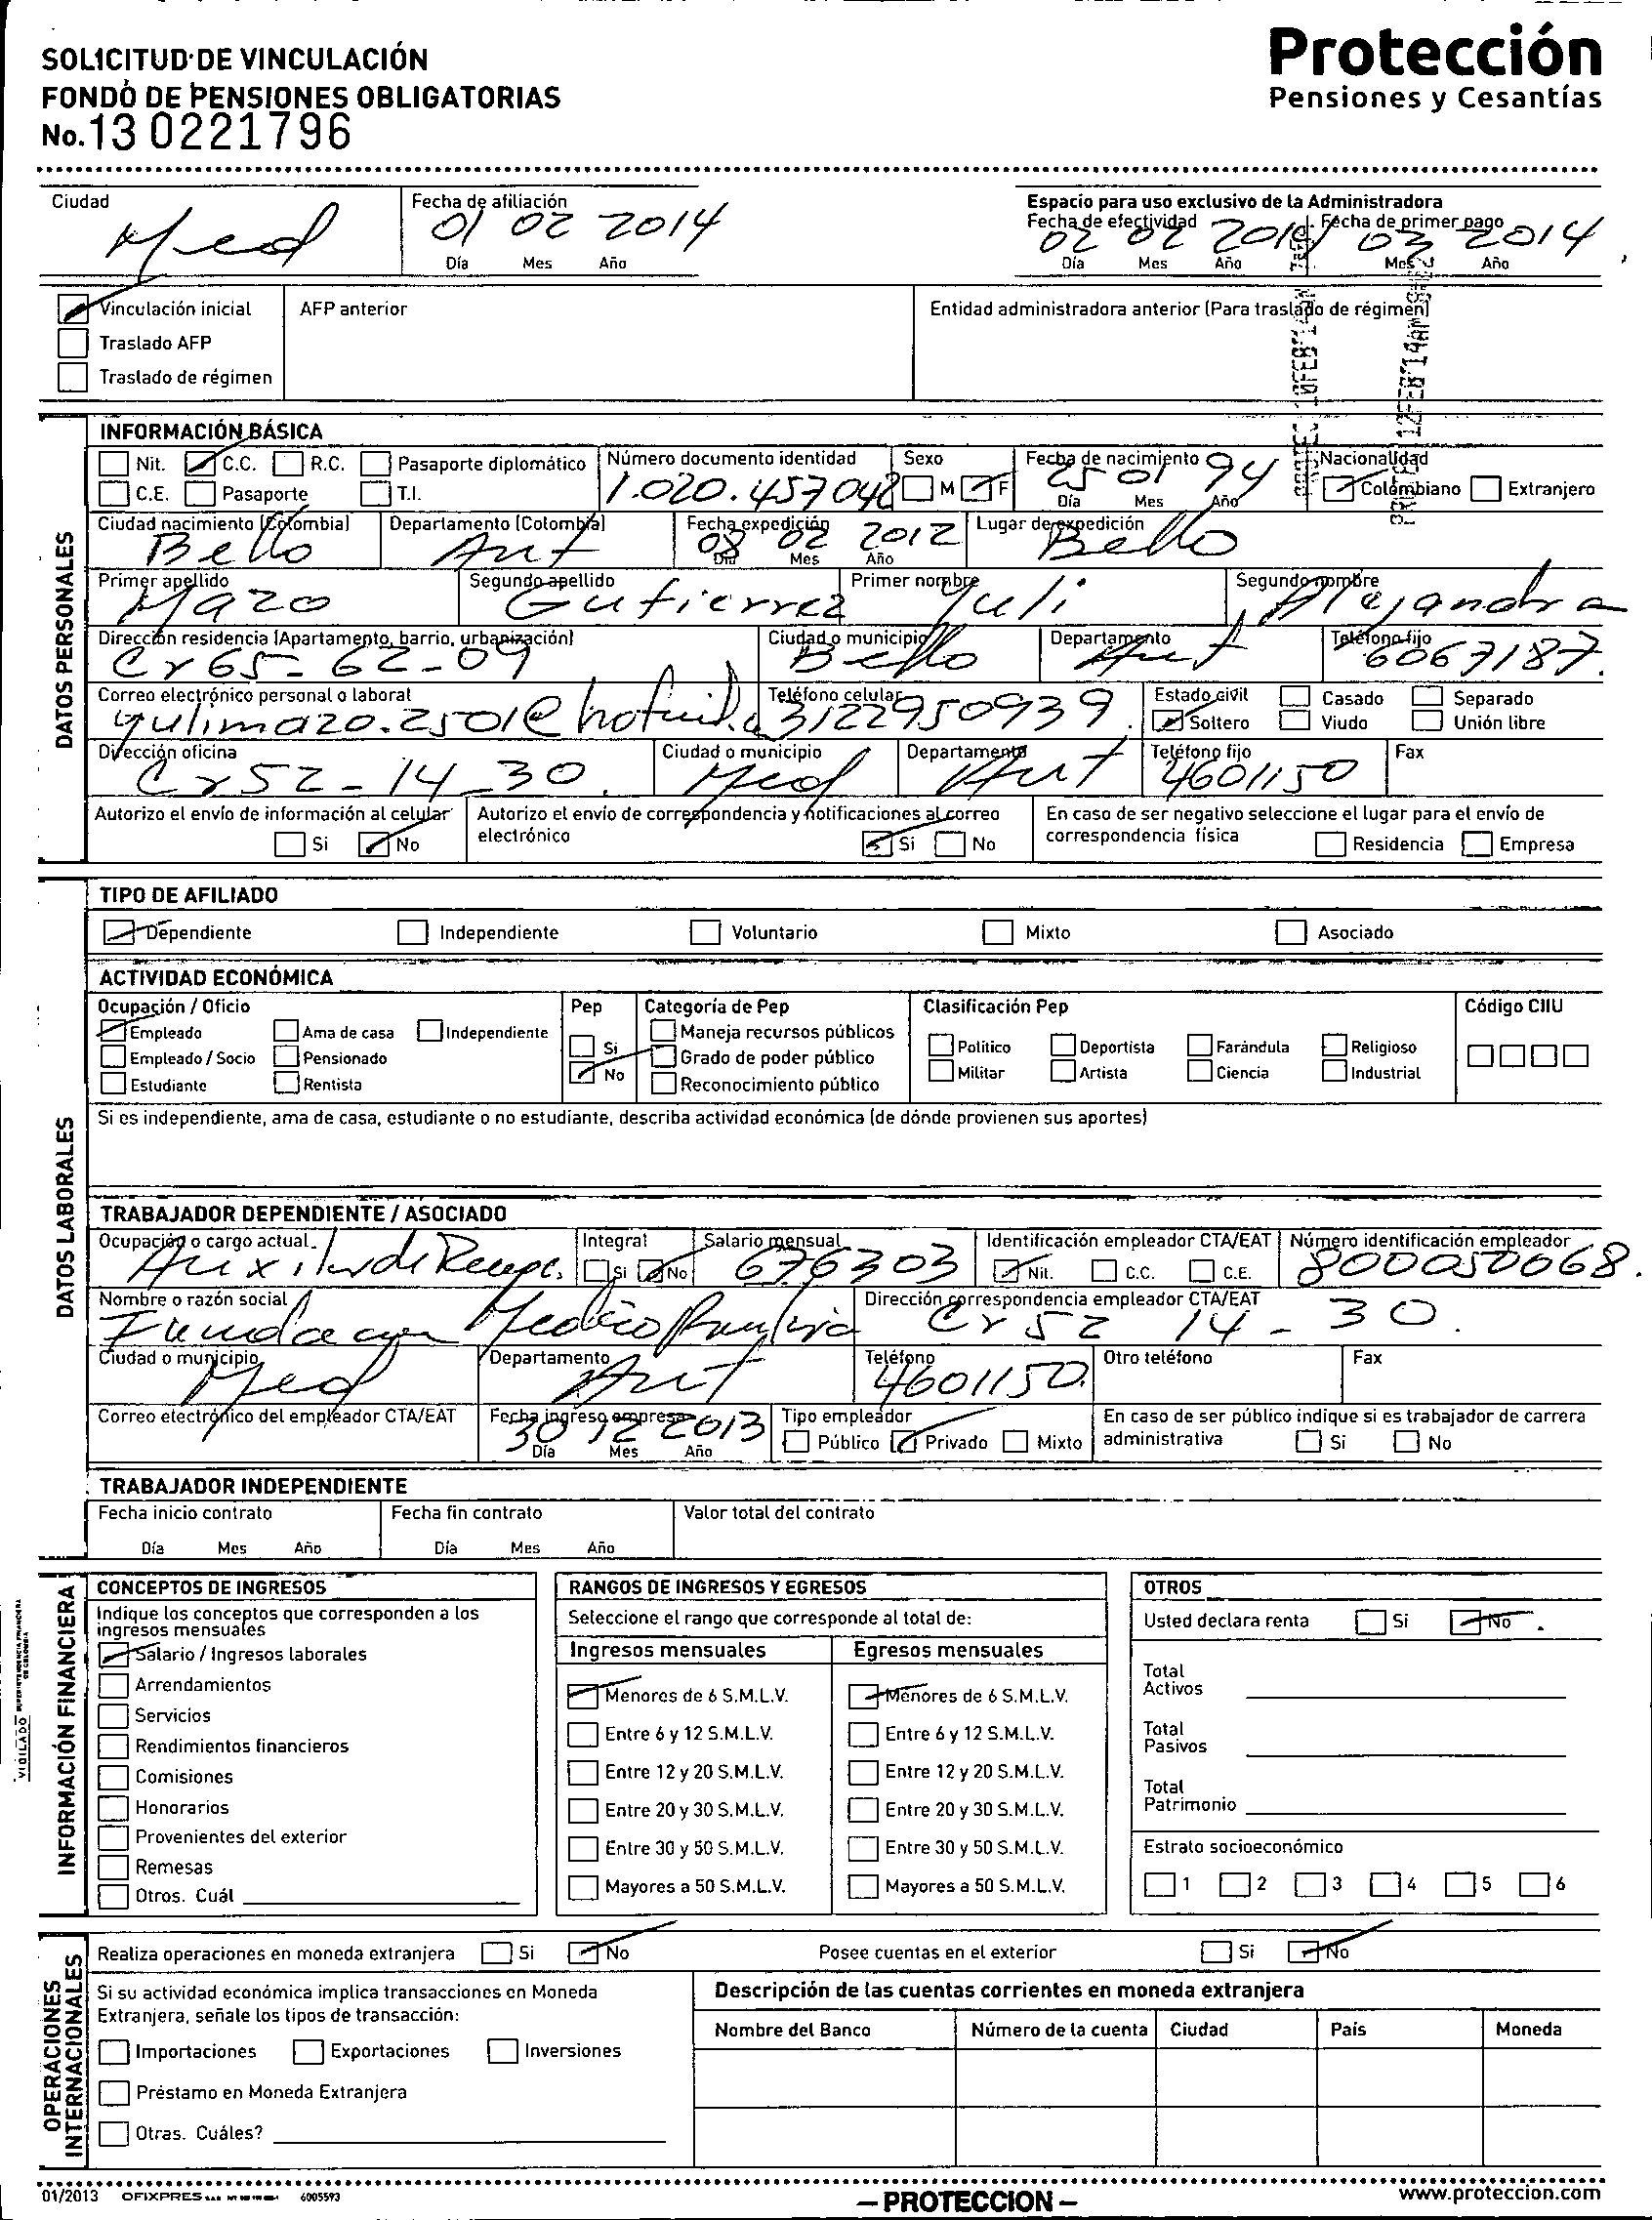 SOLICITUD DE VINCULACIÓN
FONDO DE PENSIONES OBLIGATORIAS
No. 13 0221796
Protección
Pensiones y Cesantías
Ciudad Med
Fecha de afiliación 01 02 2014
Día Mes Año
Espacio para uso exclusivo de la Administradora
Fecha de efectividad 02 02 2014 Fecha de primer pago 03 2014
Día Mes Año Mes Año
Vinculación inicial
Traslado AFP
Traslado de régimen
AFP anterior
Entidad administradora anterior (Para traslado de régimen)
DATOS PERSONALES
INFORMACIÓN BÁSICA
Nit. C.C. R.C. Pasaporte diplomático
C.E. Pasaporte T.I.
Número documento identidad 1.020.457042
Sexo M F
Fecha de nacimiento 25 01 94
Día Mes Año
Nacionalidad
Colombiano Extranjero
Ciudad nacimiento (Colombia) Bello
Departamento (Colombia) Ant
Fecha expedición 08 02 2012
Día Mes Año
Lugar de expedición Bello
Primer apellido Mazo
Segundo apellido Gutierrez
Primer nombre Yuli
Segundo nombre Alejandra
Dirección residencia (Apartamento, barrio, urbanización) Cr 65 - 62 - 09
Ciudad o municipio Bello
Departamento Ant
Teléfono fijo 6067187
Correo electrónico personal o laboral yulimazo.2501@
Teléfono celular 3122950939
Estado civil
Soltero Casado Viudo Separado Unión libre
Dirección oficina Cr 52 - 14 - 30
Ciudad o municipio Med
Departamento Ant
Teléfono fijo 4601150
Fax
Autorizo el envío de información al celular
Si No
Autorizo el envío de correspondencia y notificaciones al correo electrónico
Si No
En caso de ser negativo seleccione el lugar para el envío de correspondencia física
Residencia Empresa
DATOS LABORALES
TIPO DE AFILIADO
Dependiente Independiente Voluntario Mixto Asociado
ACTIVIDAD ECONÓMICA
Ocupación / Oficio
Empleado Ama de casa Independiente
Empleado / Socio Pensionado
Estudiante Rentista
Pep
Si
No
Categoría de Pep
Maneja recursos públicos
Grado de poder público
Reconocimiento público
Clasificación Pep
Político Deportista Farándula Religioso
Militar Artista Ciencia Industrial
Código CIIU
Si es independiente, ama de casa, estudiante o no estudiante, describa actividad económica (de dónde provienen sus aportes)
TRABAJADOR DEPENDIENTE / ASOCIADO
Ocupación o cargo actual
Integral Si No
Salario mensual 676303
Identificación empleador CTA/EAT
Nit. C.C. C.E.
Número identificación empleador 800050068.
Nombre o razón social Fundacion
Dirección correspondencia empleador CTA/EAT Cr 52 14 - 30.
Ciudad o municipio Med
Departamento Ant
Teléfono 4601150.
Otro teléfono
Fax
Correo electrónico del empleador CTA/EAT
Fecha ingreso empresa 30 12 2013
Día Mes Año
Tipo empleador
Público Privado Mixto
En caso de ser público indique si es trabajador de carrera administrativa
Si No
TRABAJADOR INDEPENDIENTE
Fecha inicio contrato
Día Mes Año
Fecha fin contrato
Día Mes Año
Valor total del contrato
INFORMACIÓN FINANCIERA
CONCEPTOS DE INGRESOS
Indique los conceptos que corresponden a los ingresos mensuales
Salario / Ingresos laborales
Arrendamientos
Servicios
Rendimientos financieros
Comisiones
Honorarios
Provenientes del exterior
Remesas
Otros. Cuál
RANGOS DE INGRESOS Y EGRESOS
Seleccione el rango que corresponde al total de:
Ingresos mensuales Egresos mensuales
Menores de 6 S.M.L.V. Menores de 6 S.M.L.V.
Entre 6 y 12 S.M.L.V. Entre 6 y 12 S.M.L.V.
Entre 12 y 20 S.M.L.V. Entre 12 y 20 S.M.L.V.
Entre 20 y 30 S.M.L.V. Entre 20 y 30 S.M.L.V.
Entre 30 y 50 S.M.L.V. Entre 30 y 50 S.M.L.V.
Mayores a 50 S.M.L.V. Mayores a 50 S.M.L.V.
OTROS
Usted declara renta Si No
Total Activos
Total Pasivos
Total Patrimonio
Estrato socioeconómico
1 2 3 4 5 6
VIGILADO
OPERACIONES INTERNACIONALES
Realiza operaciones en moneda extranjera Si No
Posee cuentas en el exterior Si No
Si su actividad económica implica transacciones en Moneda
Extranjera, señale los tipos de transacción:
Importaciones Exportaciones Inversiones
Préstamo en Moneda Extranjera
Otras. Cuáles?
Descripción de las cuentas corrientes en moneda extranjera
Nombre del Banco Número de la cuenta Ciudad País Moneda
01/2013 OFIXPRES 6005593
– PROTECCION –
www.proteccion.com